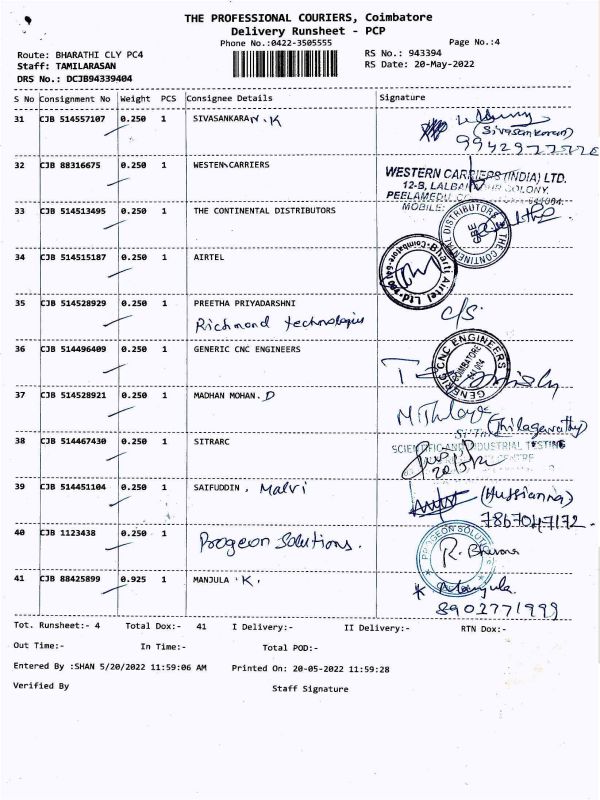 THE PROFESSIONAL COURIERS, Coimbatore
Delivery Runsheet - PCP
Phone No.:0422-3505555
Page No.:4
Route: BHARATHI CLY PC4
RS No.: 943394
Staff: TAMILARASAN
RS Date: 20-May-2022
DRS No.: DCJB94339404
S No Consignment No Weight PCS Consignee Details Signature
31 CJB 514557107 0.250 1 SIVASANKARAN. K
(Sivasankaran)
32 CJB 88316675 0.250 1 WESTERN CARRIERS
WESTERN CARRIERS (INDIA) LTD.
12-B, COLONY,
PEELAMEDU
MOBILE:
33 CJB 514513495 0.250 1 THE CONTINENTAL DISTRIBUTORS
THE CONTINENTAL DISTRIBUTORS
CBE
34 CJB 514515187 0.250 1 AIRTEL
Bharti Airtel Ltd
35 CJB 514528929 0.250 1 PREETHA PRIYADARSHNI
Richmond technologies
C/S.
36 CJB 514496409 0.250 1 GENERIC CNC ENGINEERS
GENERIC CNC ENGINEERS
COIMBATORE
641 004
37 CJB 514528921 0.250 1 MADHAN MOHAN. D
(Thilagavathy)
38 CJB 514467430 0.250 1 SITRARC
SCIENTIFIC AND INDUSTRIAL TESTING
CENTRE
39 CJB 514451104 0.250 1 SAIFUDDIN . Malvi
(Hussianna)
7867047172.
40 CJB 1123438 0.250 1 Progeon Solutions.
PROGEON SOLUTIONS
R.
41 CJB 88425899 0.925 1 MANJULA . K.
* Manjula.
8902771999
Tot. Runsheet:- 4 Total Dox:- 41 I Delivery:- II Delivery:- RTN Dox:-
Out Time:- In Time:- Total POD:-
Entered By :SHAN 5/20/2022 11:59:06 AM Printed On: 20-05-2022 11:59:28
Verified By Staff Signature